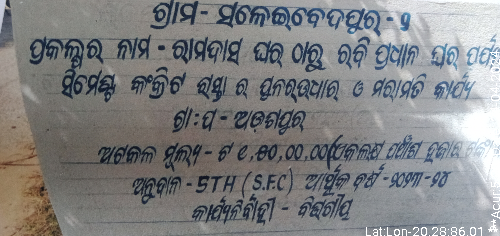 ଗ୍ରାମ - ସଳେଇବେଦପୁର - ୨
ପ୍ରକଳ୍ପର ନାମ - ରାମଦାସ ଘର ଠାରୁ ରବି ପ୍ରଧାନ ଘର ପର୍ଯ୍ୟ
ସିମେଣ୍ଟ କଂକ୍ରିଟ ରାସ୍ତା ର ପୁନରଉଧାର ଓ ମରାମତି କାର୍ଯ୍ୟ
ଗ୍ରା:ପ - ଅଙ୍ଗପୁର
ଅଟକଳ ମୂଲ୍ୟ - ଟ ୧,୫୦,୦୦.୦୦(ଏକଲକ୍ଷ ପଚାଶ ହଜାର
ଅନୁଦାନ - 5TH (S.F.C) ଆର୍ଥିକ ବର୍ଷ - ୨୦୨୩-୨୪
କାର୍ଯ୍ୟନିର୍ବାହୀ - ବିଭାଗୀୟ
Lat:Lon-20.28:86.01